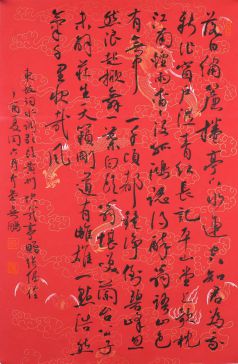 落日繡簾捲亭下水連空知君為我
新作窗户濕青紅長記平山堂上欹枕
江南煙雨杳杳没孤鴻認得醉翁語山色
有無中一千頃都鏡净倒碧峰忽
然浪起掀舞一葉白頭翁堪笑蘭台公子
未解莊生天籟剛道有雌雄一點浩然
氣千里快哉風
東坡詞水調歌頭黄州快哉亭贈張偓佺
丁酉夏月